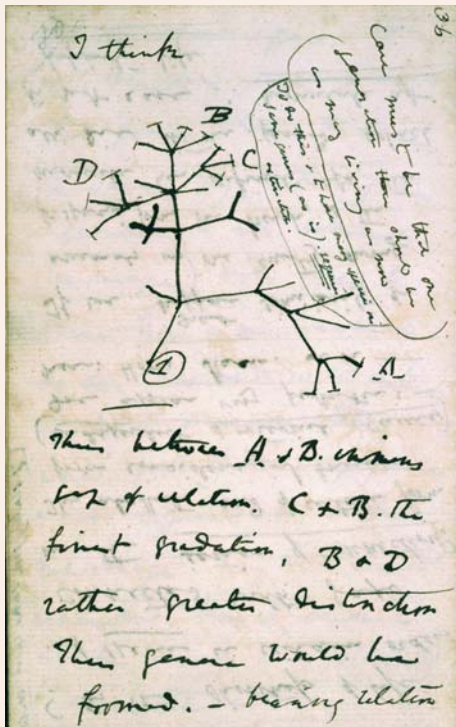 36
I think
Case must be that one
generation then should be
as many living as now
To do this & to have many species in
same genus (as is), requires
extinction.
B
C
D
A
1
Thus between A & B. immens
gap of relation. C & B. The
finest gradation, B & D
rather greater distinction
Thus genera would be
formed. — bearing relation